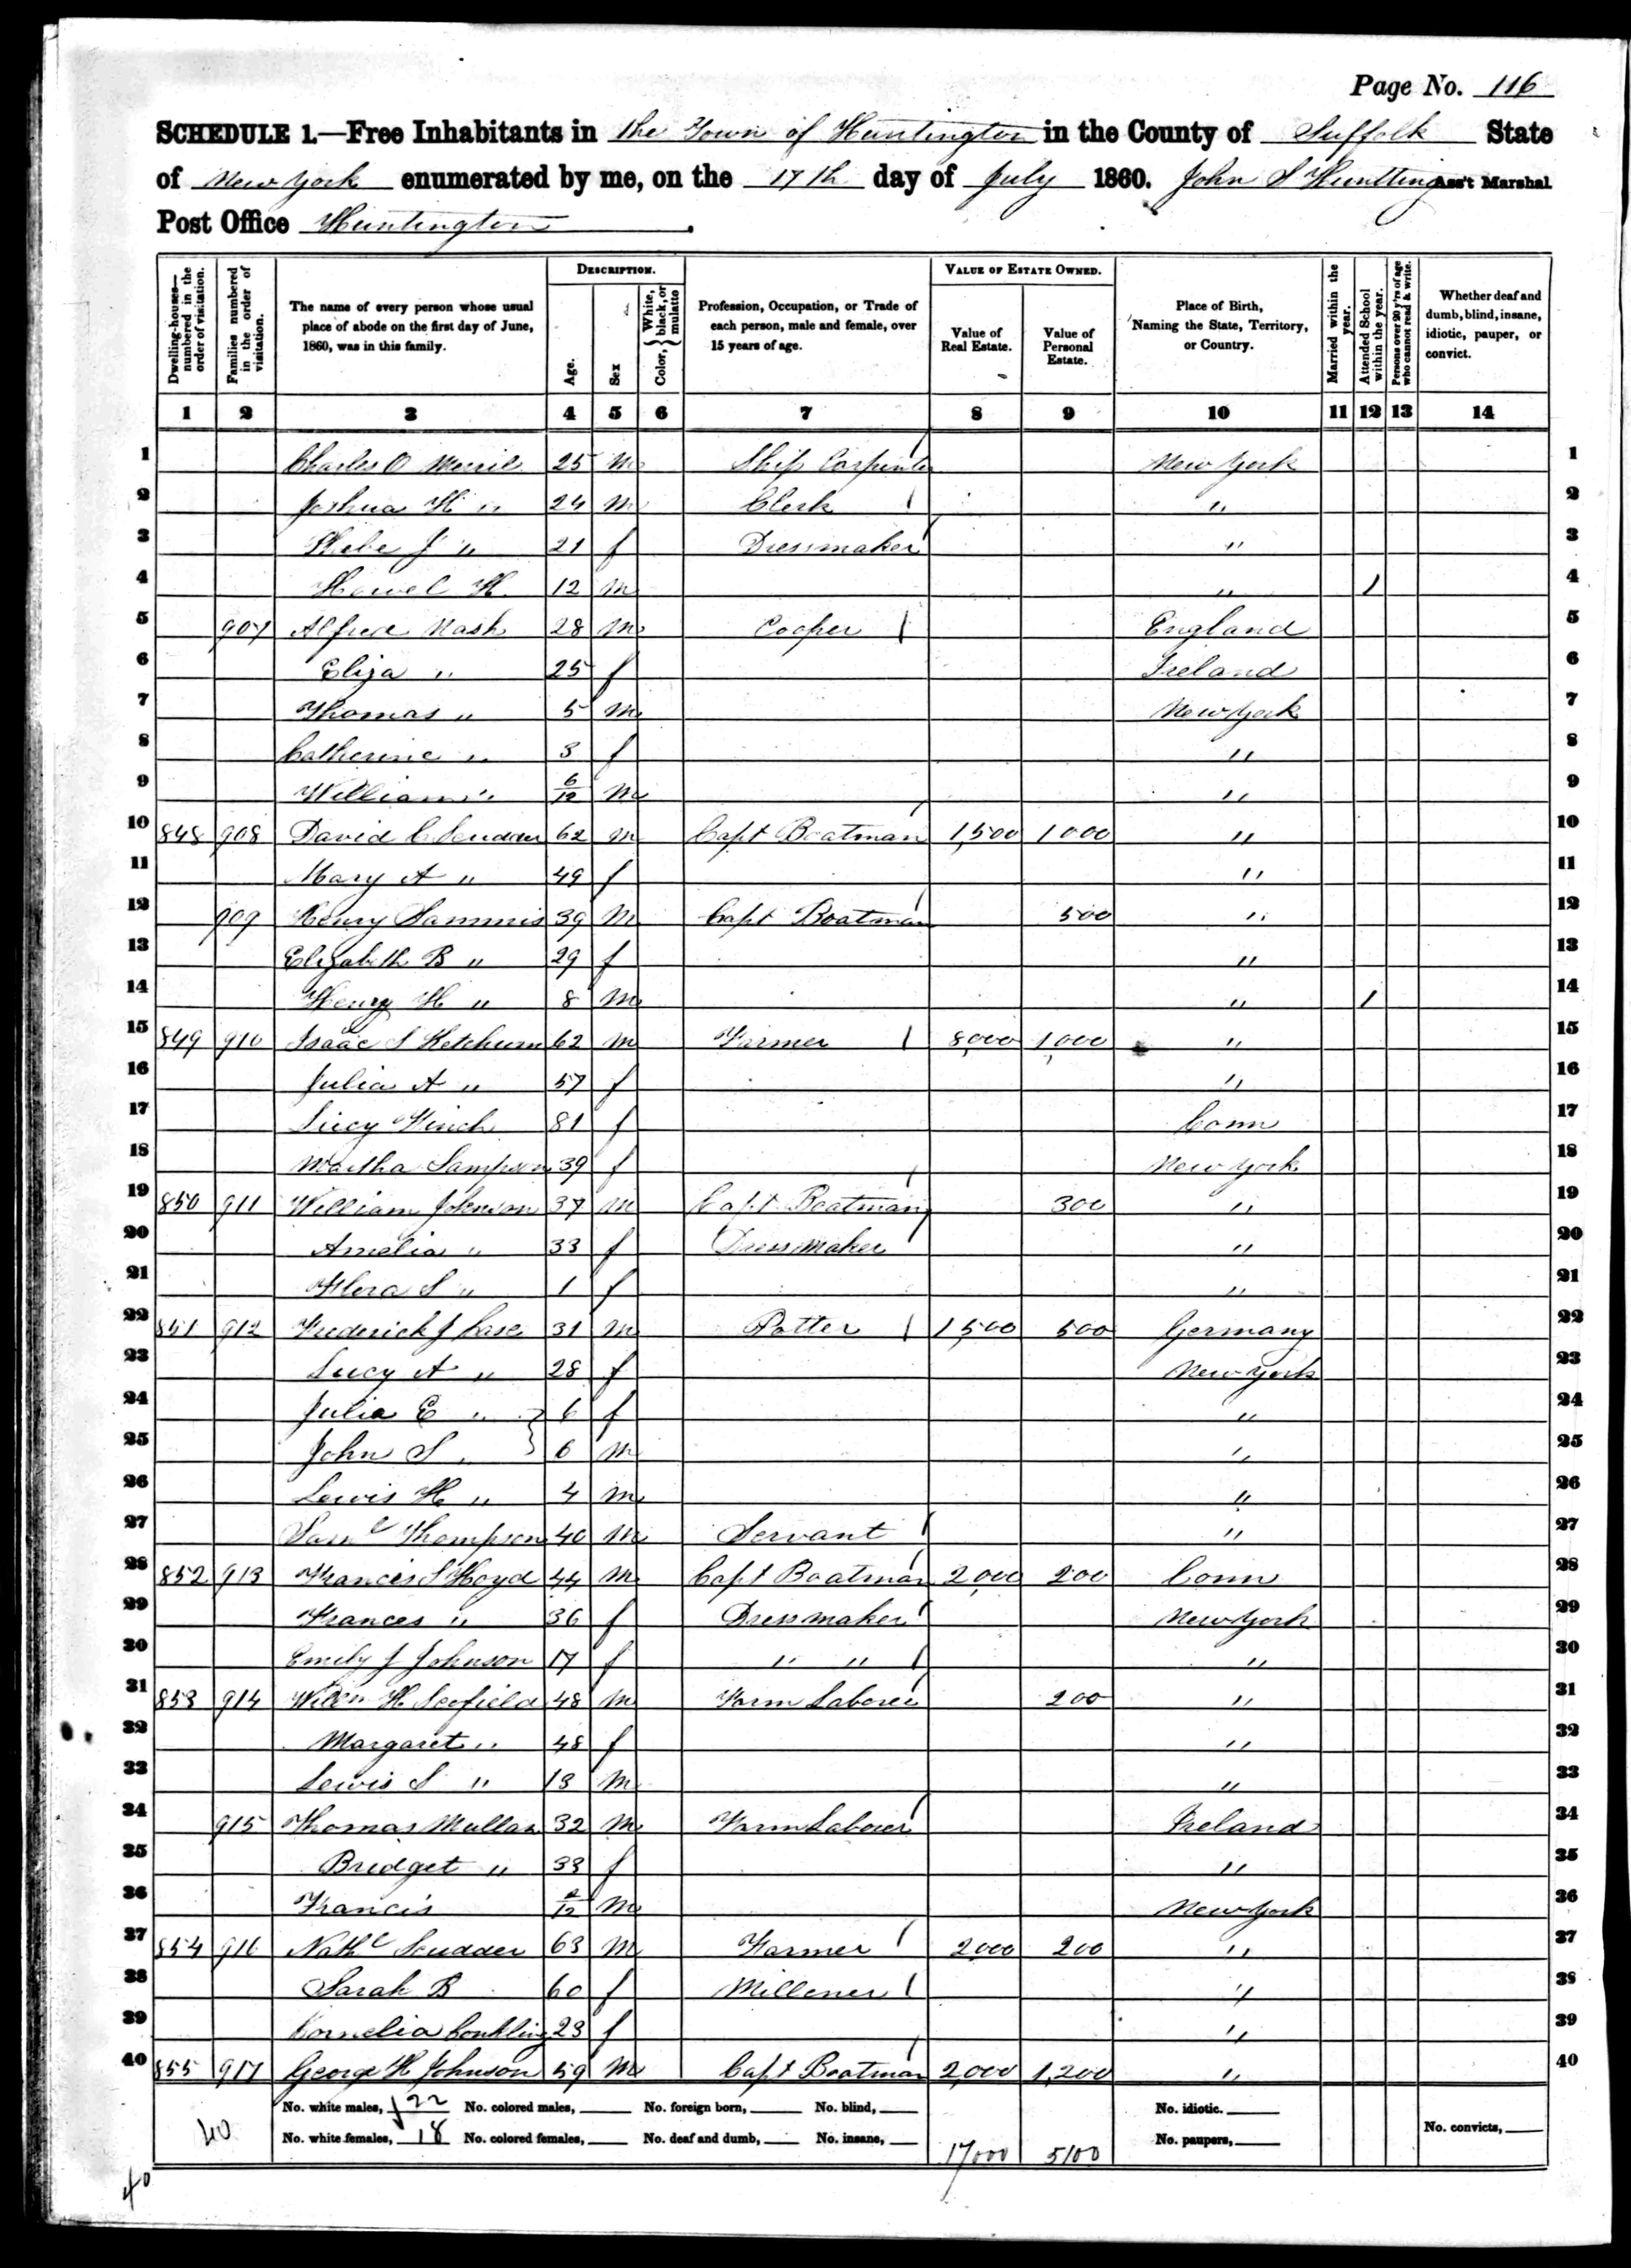 Page No. 116
SCHEDULE 1.—Free Inhabitants in the Town of Huntington in the County of Suffolk State
of New York enumerated by me, on the 17th day of July 1860. John S Huntting Ass't Marshal
Post Office Huntington.
Dwelling-houses—numbered in the order of visitation.
Families numbered in the order of visitation.
The name of every person whose usual place of abode on the first day of June, 1860, was in this family.
DESCRIPTION.
Age.
Sex
Color, { White, black, or mulatto
Profession, Occupation, or Trade of each person, male and female, over 15 years of age.
VALUE OF ESTATE OWNED.
Value of Real Estate.
Value of Personal Estate.
Place of Birth, Naming the State, Territory, or Country.
Married within the year.
Attended School within the year.
Persons over 20 y'rs of age who cannot read & write.
Whether deaf and dumb, blind, insane, idiotic, pauper, or convict.
1 2 3 4 5 6 7 8 9 10 11 12 13 14
1 Charles O Merril 25 m Ship Carpenter New York 1
2 Joshua H " 24 m Clerk " 2
3 Phebe J " 21 f Dressmaker " 3
4 Howel H. 12 m " 1 4
5 907 Alfred Nash 28 m Cooper England 5
6 Eliza " 25 f Ireland 6
7 Thomas " 5 m New York 7
8 Catherine " 3 f " 8
9 William " 6/12 m " 9
10 848 908 David C Scudder 62 m Capt Boatman 1,500 1000 " 10
11 Mary A " 49 f " 11
12 909 Henry Sammis 39 m Capt Boatman 500 " 12
13 Elizabeth B " 29 f " 13
14 Henry H " 8 m " 1 14
15 849 910 Isaac S Ketchum 62 m Farmer 8,000 1,000 " 15
16 Julia A " 57 f " 16
17 Lucy Finch 81 f Conn 17
18 Martha Sampson 39 f New York 18
19 850 911 William Johnson 37 m Capt Boatman 300 " 19
20 Amelia " 33 f Dressmaker " 20
21 Flora S " 1 f " 21
22 851 912 Frederick J Case 31 m Potter 1500 500 Germany 22
23 Lucy A " 28 f New York 23
24 Julia E " 6 f " 24
25 John S " 6 m " 25
26 Lewis H " 4 m " 26
27 Saml Thompson 40 m Servant " 27
28 852 913 Francis S Hoyd 44 m Capt Boatman 2,000 200 Conn 28
29 Frances " 36 f Dressmaker New York 29
30 Emily J Johnson 17 f " " " 30
31 853 914 Willm H Scofield 48 m Farm Laborer 200 " 31
32 Margaret " 48 f " 32
33 Lewis S " 13 m " 33
34 915 Thomas Mullan 32 m Farm Laborer Ireland 34
35 Bridget " 33 f " 35
36 Francis m New York 36
37 854 916 Nathl Scudder 63 m Farmer 2000 200 " 37
38 Sarah B 60 f Millener " 38
39 Cornelia Conkling 23 f " 39
40 855 917 George H Johnson 59 m Capt Boatman 2,000 1,200 " 40
40 No. white males, 22 No. colored males, No. foreign born, No. blind, No. idiotic.
No. white females, 18 No. colored females, No. deaf and dumb, No. insane, 17000 5100 No. paupers, No. convicts,
40